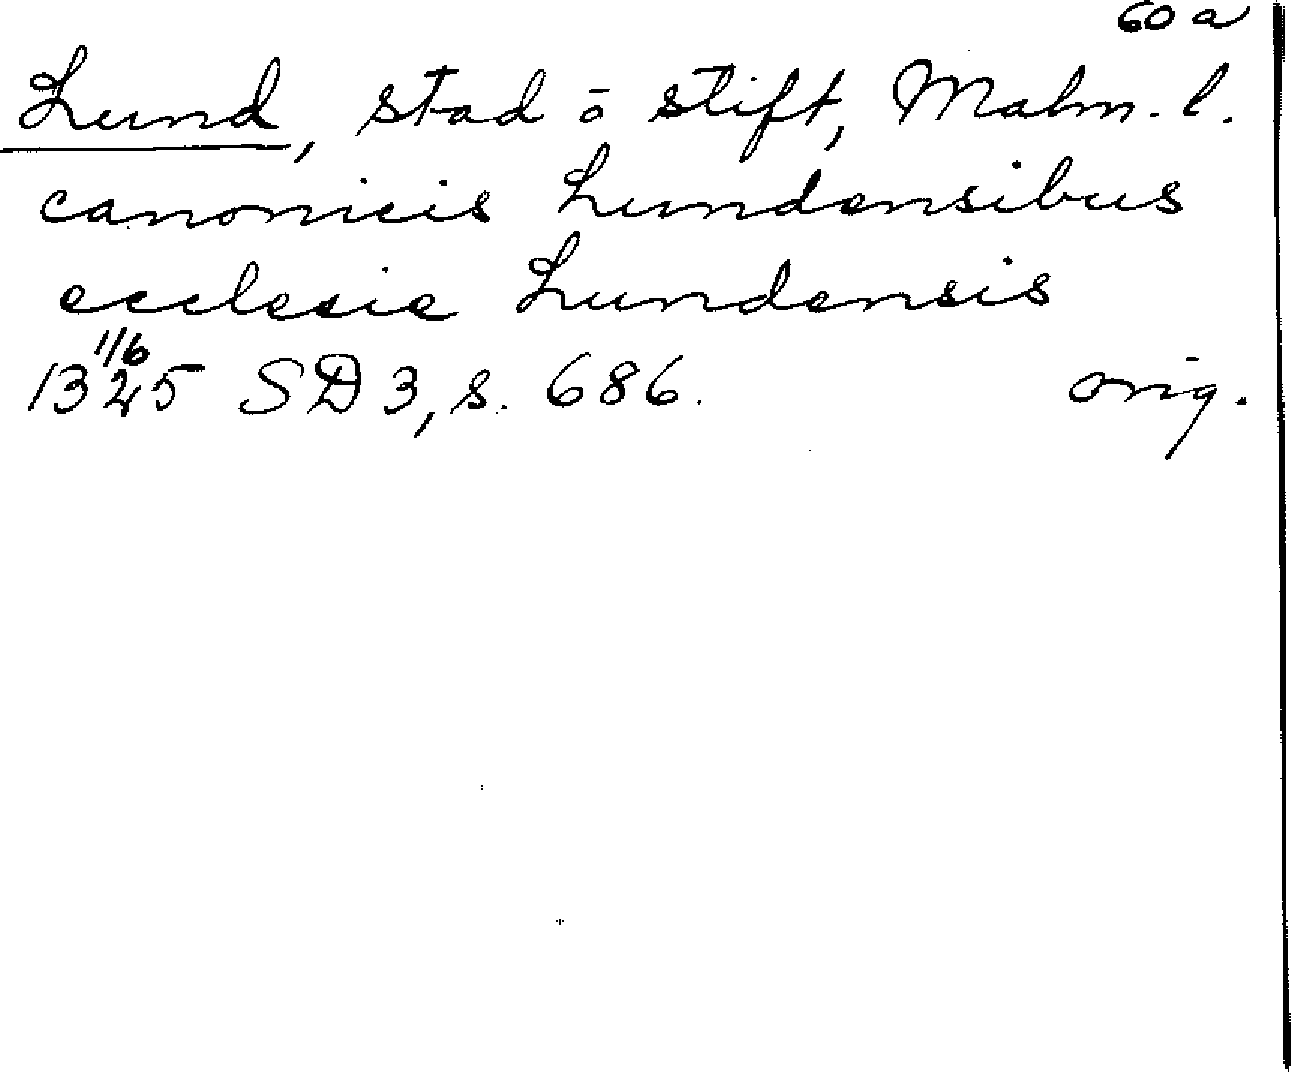 60 a
Lund, stad ō stift, Malm. l.
canonicis Lundensibus
ecclesie Lundensis
1/6
1325 SD 3, s. 686. orig.